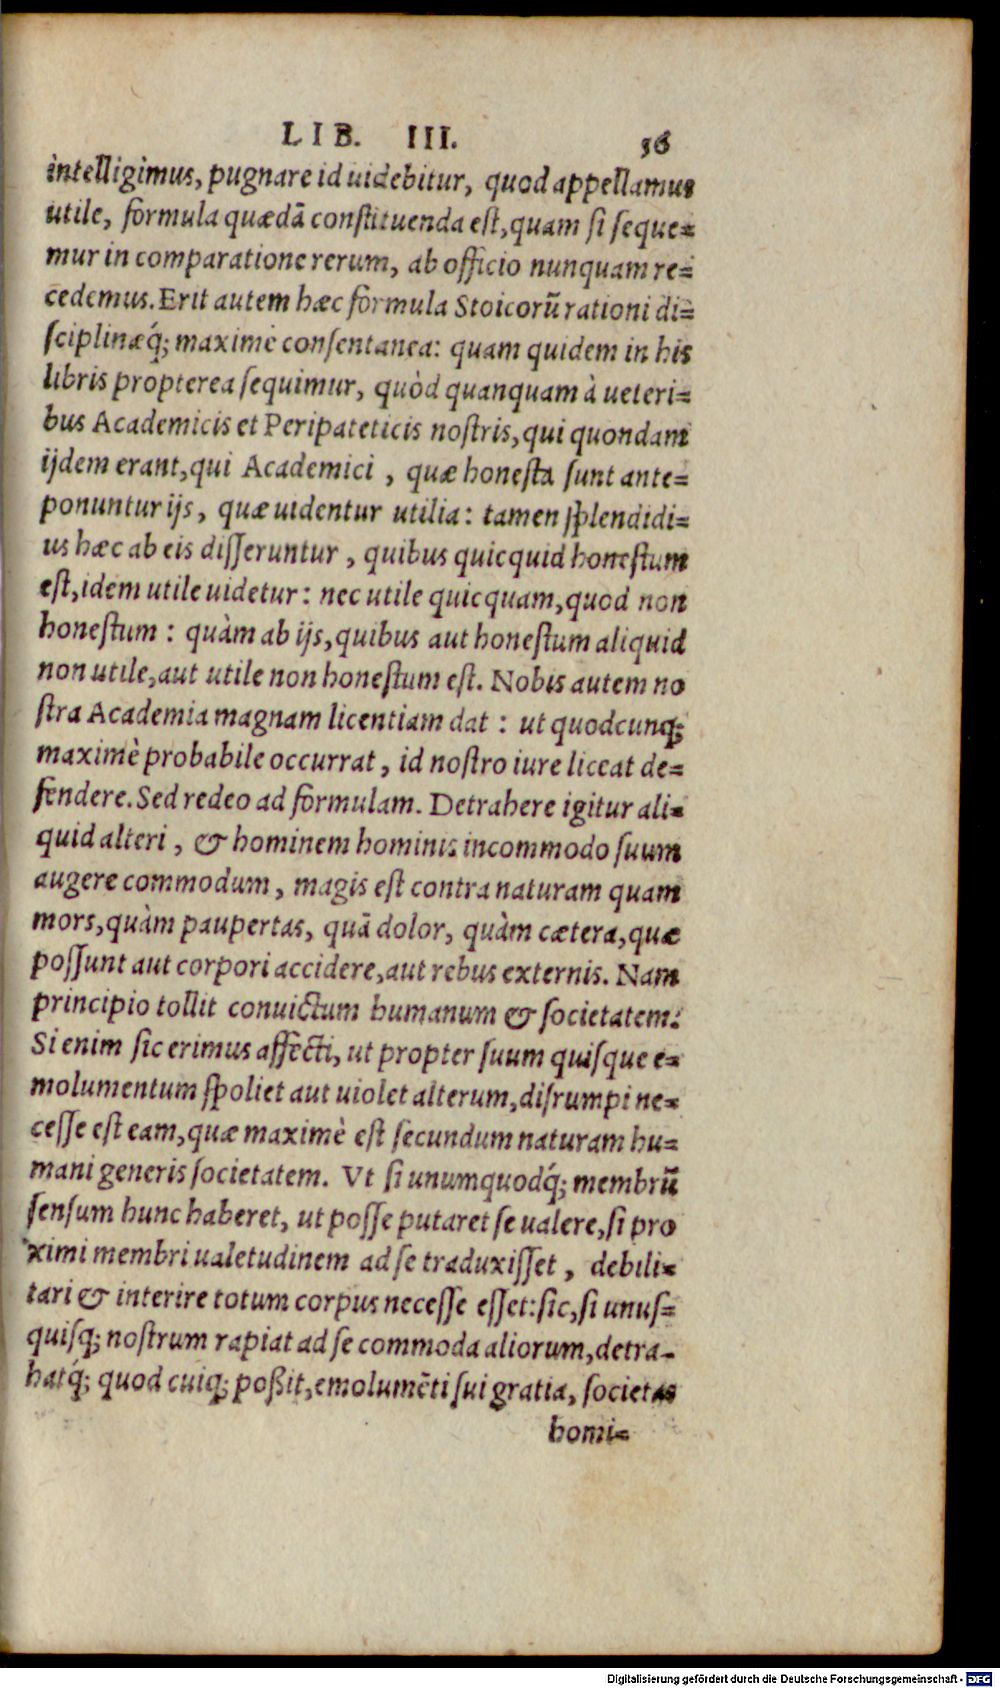 LIB. III. 56
intelligimus, pugnare id uidebitur, quod appellamus
utile, formula quædā constituenda est, quam si seque=
mur in comparatione rerum, ab officio nunquam re=
cedemus. Erit autem hæc formula Stoicorū rationi di=
sciplinæq́; maximè consentanea: quam quidem in his
libris propterea sequimur, quòd quanquam à ueteri=
bus Academicis et Peripateticis nostris, qui quondam
ijdem erant, qui Academici, quæ honesta sunt ante=
ponuntur ijs, quæ uidentur utilia: tamen splendidi=
us hæc ab eis disseruntur, quibus quicquid honestum
est, idem utile uidetur: nec utile quicquam, quod non
honestum: quàm ab ijs, quibus aut honestum aliquid
non utile, aut utile non honestum est. Nobis autem no
stra Academia magnam licentiam dat: ut quodcunq;
maximè probabile occurrat, id nostro iure liceat de=
fendere. Sed redeo ad formulam. Detrahere igitur ali=
quid alteri, & hominem hominis incommodo suum
augere commodum, magis est contra naturam quam
mors, quàm paupertas, quā dolor, quàm cætera, quæ
possunt aut corpori accidere, aut rebus externis. Nam
principio tollit conuictum humanum & societatem.
Si enim sic erimus affecti, ut propter suum quisque e=
molumentum spoliet aut uiolet alterum, disrumpi ne=
cesse est eam, quæ maximè est secundum naturam hu=
mani generis societatem. Vt si unumquodq́; membrū
sensum hunc haberet, ut posse putaret se ualere, si pro
ximi membri ualetudinem ad se traduxisset, debili=
tari & interire totum corpus necesse esset: sic, si unus=
quisq; nostrum rapiat ad se commoda aliorum, detra-
hatq́; quod cuiq; poßit, emolumēti sui gratia, societas
homi=
Digitalisierung gefördert durch die Deutsche Forschungsgemeinschaft - DFG